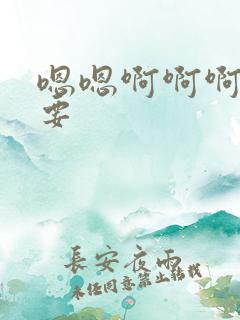 嗯嗯啊啊啊
要
長安夜雨
未经同意禁止转载